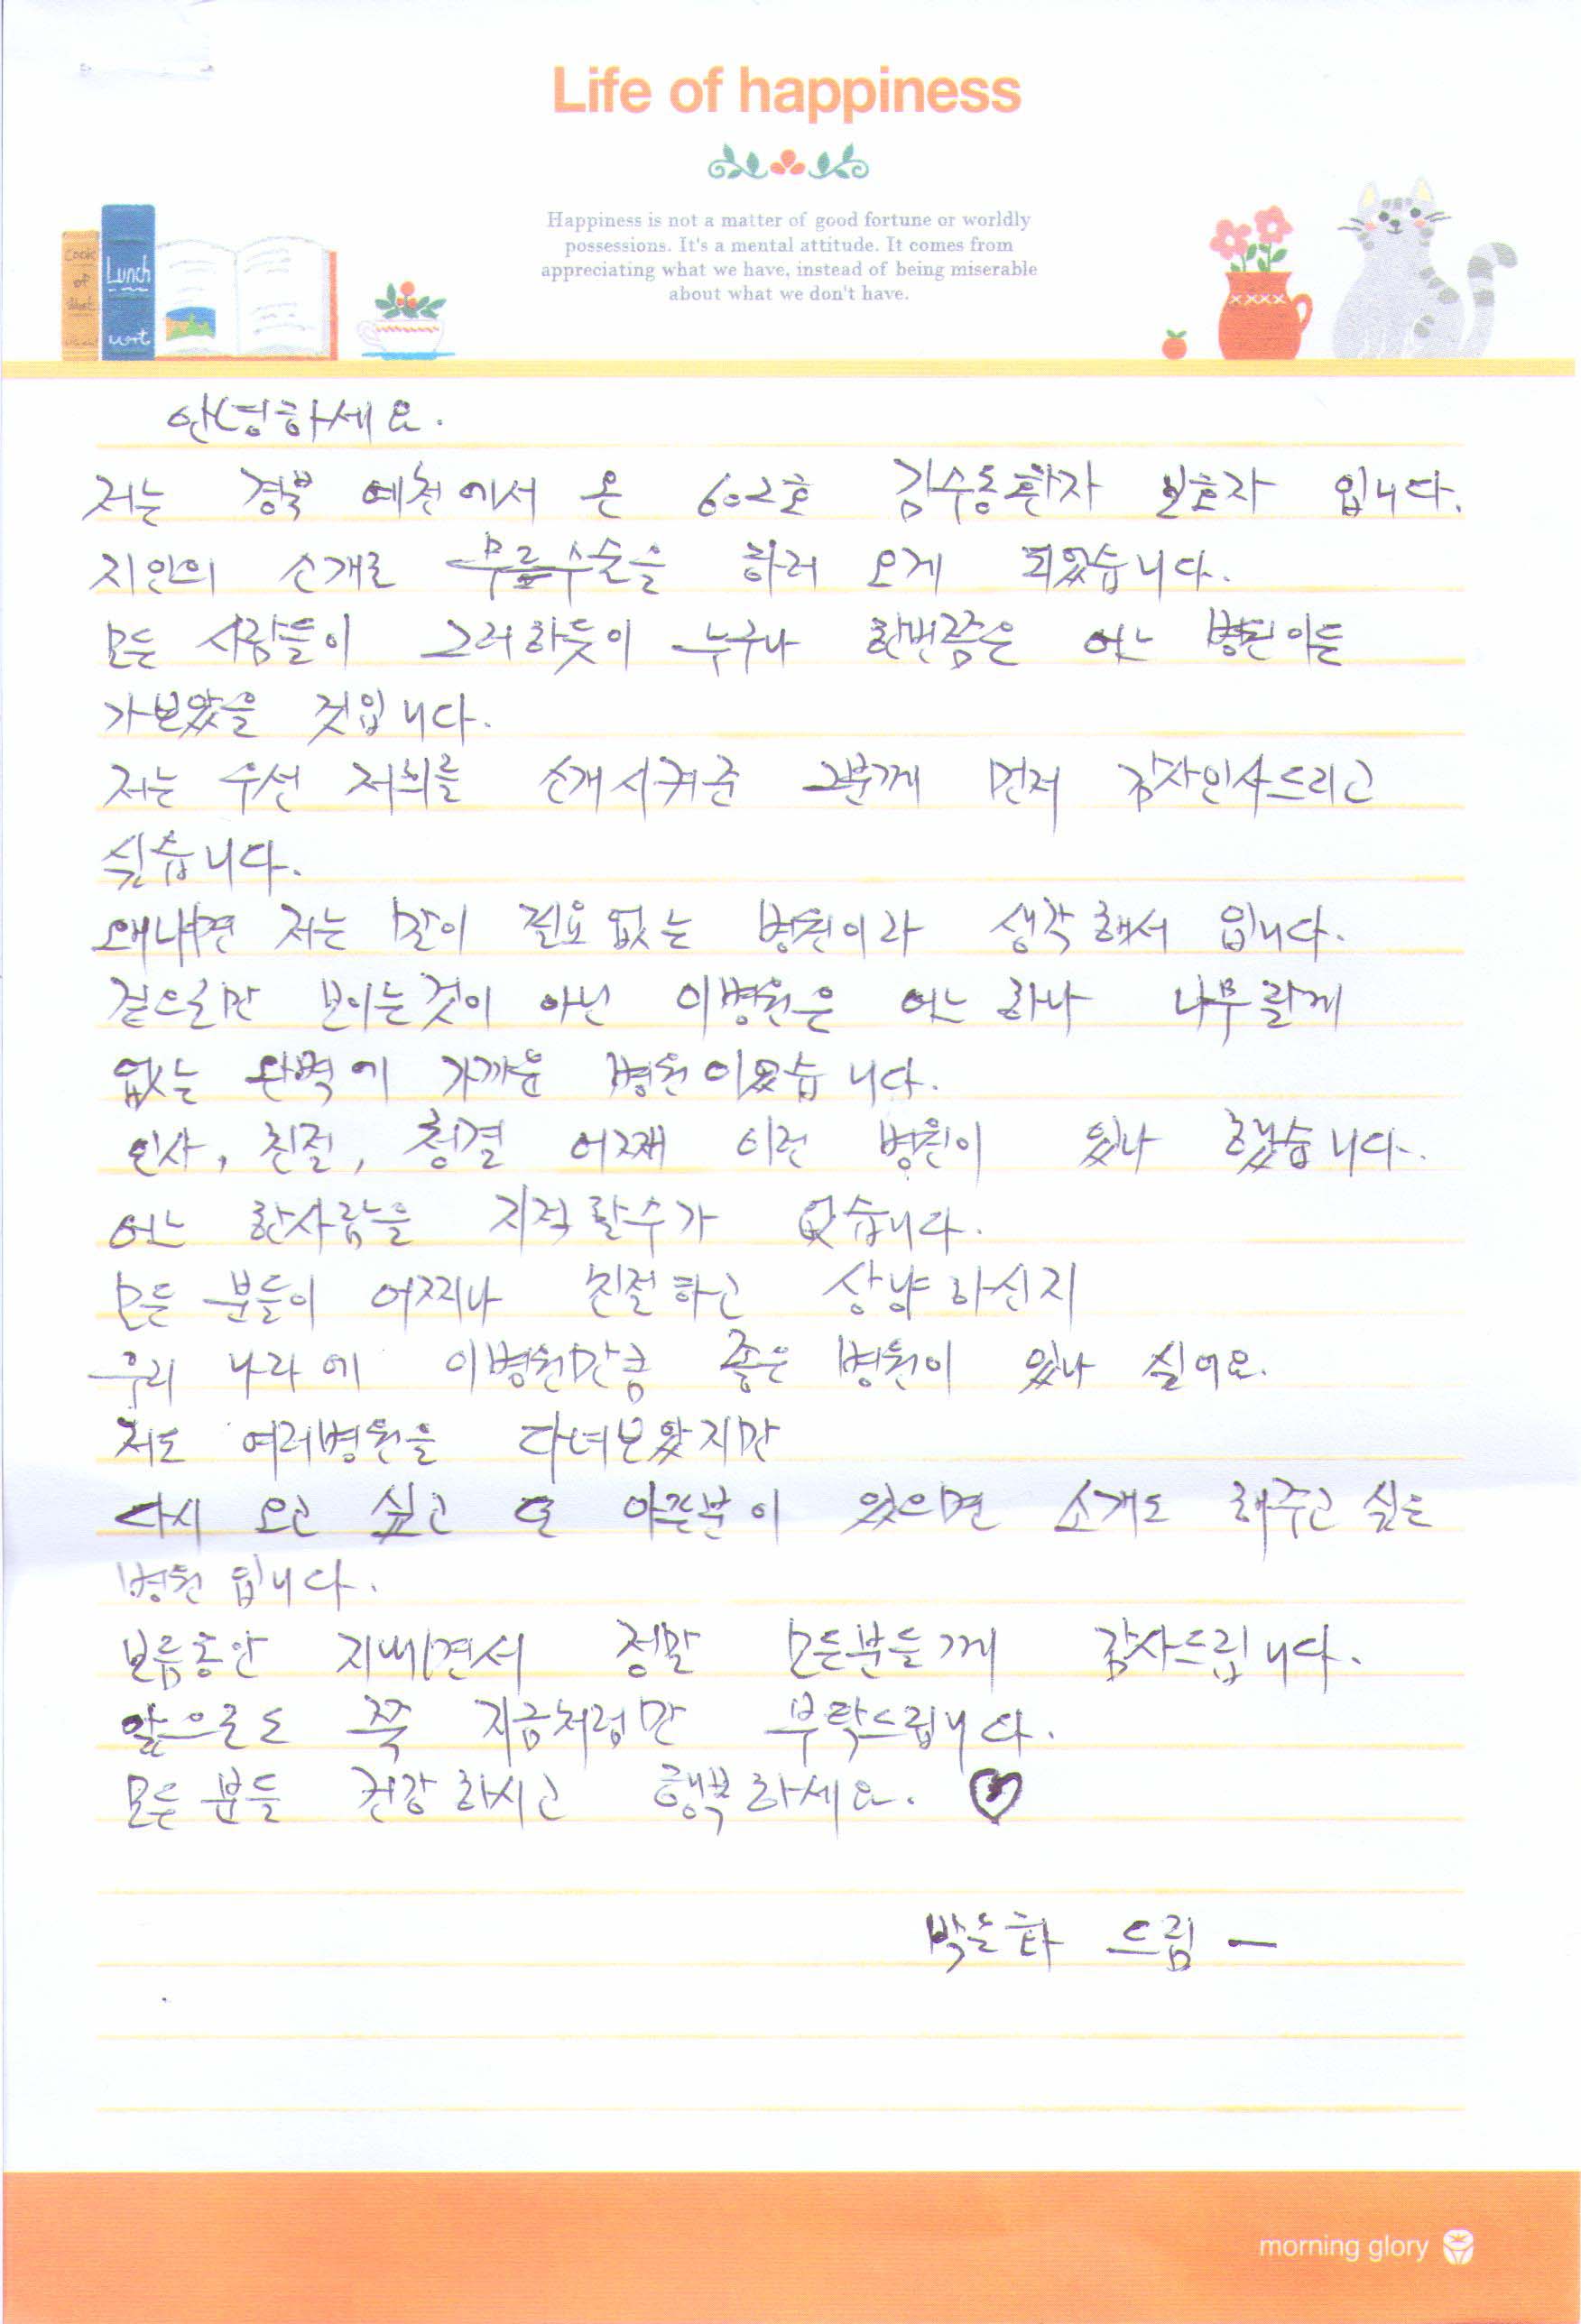 Life of happiness
Happiness is not a matter of good fortune or worldly
possessions. It's a mental attitude. It comes from
appreciating what we have, instead of being miserable
about what we don't have.
Cook
of
Lunch
안녕하세요.
저는 경북 예천에서 온 602호 김수동환자 보호자 입니다.
지인의 소개로 무릎수술을 하러 오게 되었습니다.
모든 사람들이 그러하듯이 누구나 한번쯤은 어느 병원이든
가보았을 것입니다.
저는 우선 저희를 소개시켜준 그분께 먼저 감사인사드리고
싶습니다.
왜냐면 저는 말이 필요없는 병원이라 생각해서 입니다.
겉으로만 보이는것이 아닌 이병원은 어느 하나 나무랄게
없는 완벽에 가까운 병원이였습니다.
인사, 친절, 청결 어째 이런 병원이 있나 했습니다.
어느 한사람을 지적할수가 없습니다.
모든 분들이 어찌나 친절하고 상냥하신지
우리 나라에 이병원만큼 좋은 병원이 있나 싶어요.
저도 여러병원을 다녀보았지만
다시 오고 싶고 또 아픈분이 있으면 소개도 해주고 싶은
병원입니다.
보름동안 지내면서 정말 모든분들께 감사드립니다.
앞으로도 쭉 지금처럼만 부탁드립니다.
모든 분들 건강하시고 행복하세요. ♡
드림 —
morning glory